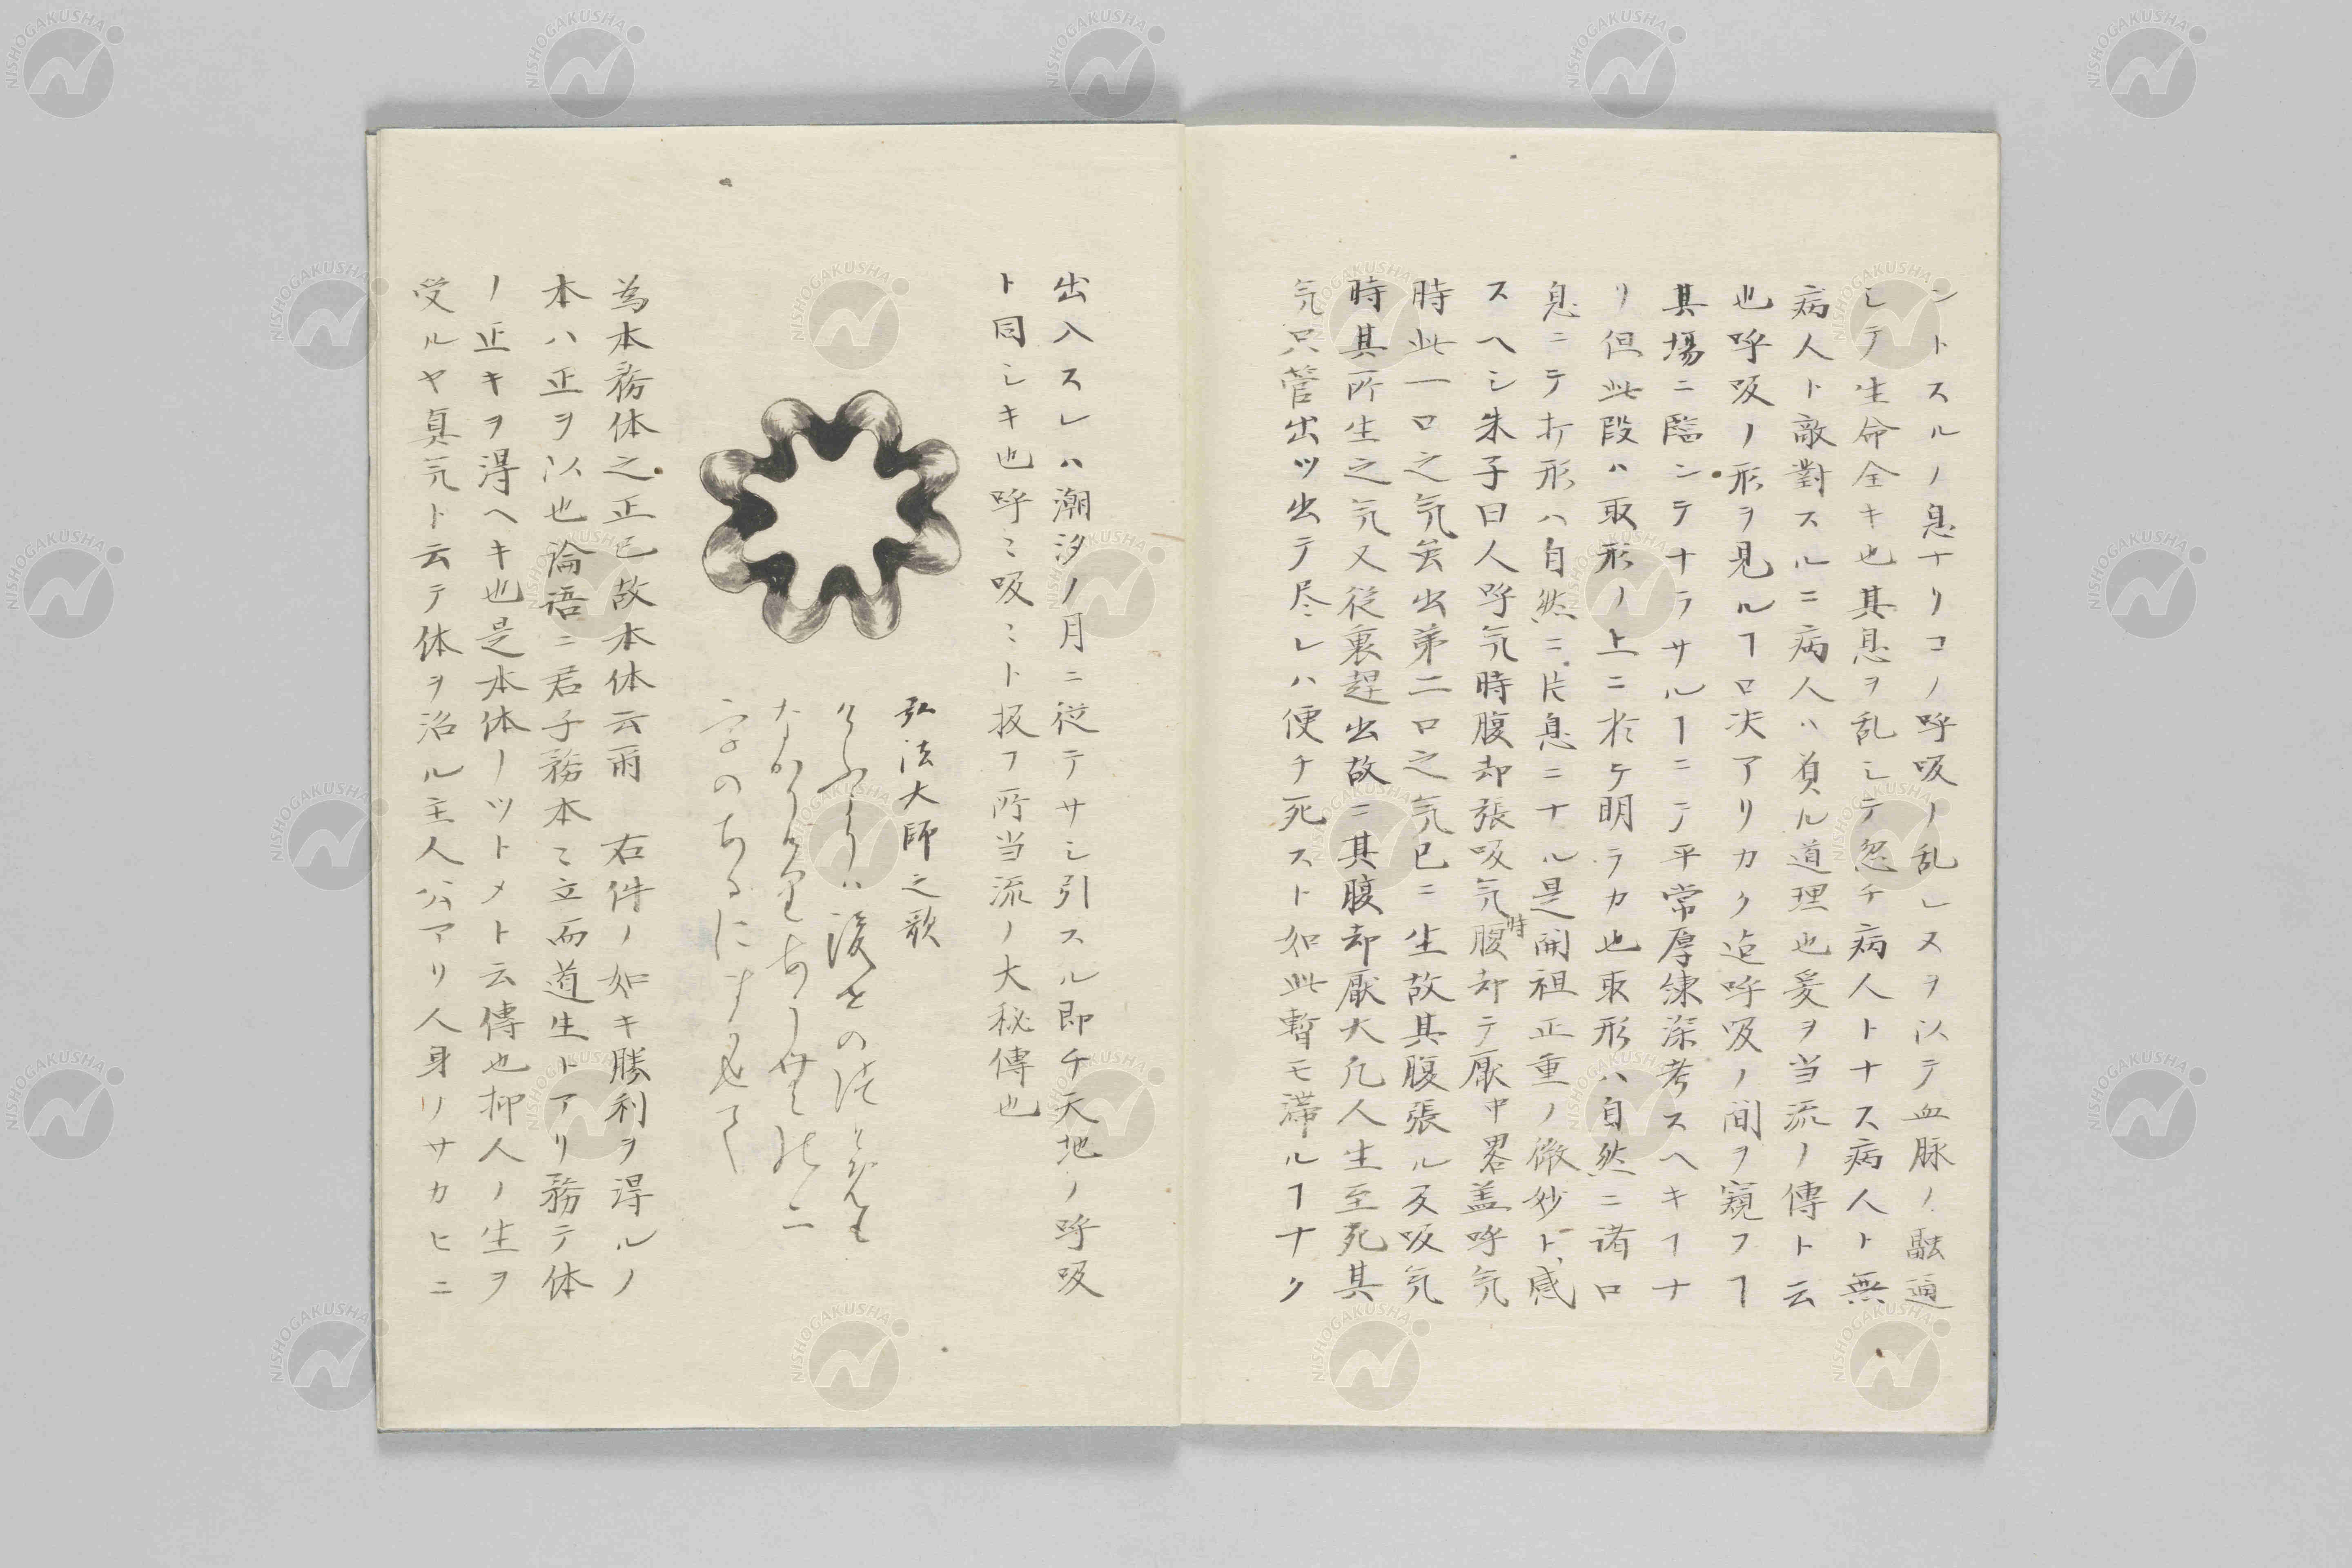 ントスルノ息ナリコノ呼吸ノ乱レスヲ以テ血脉ノ融通
シテ生命全キ也其息ヲ乱シテ忽チ病人トナス病人ト無
病人ト敵對スルニ病人ハ負ル道理也爰ヲ当流ノ傳ト云
也呼吸ノ形ヲ見ルヿ口决アリカク迠呼吸ノ間ヲ窺フヿ
其場ニ臨ンテナラサルヿニテ平常厚練深考スヘキヿナ
リ但此段ハ取形ノ上ニ於ケ明ラカ也取形ハ自然ニ諸口
息ニテ打形ハ自然ニ片息ニナル是開祖正重ノ微妙ト感
スヘシ朱子曰人呼氕時腹却張吸氕時腹却テ厭中畧盖呼氕
時此一口之氕矣出弟二口之氕已ニ生故其腹張ル及吸氕
時其所生之氕又従裏趕出故ニ其腹却厭大凢人生至死其
氕只管出ツ出テ尽レハ便チ死スト如此暫モ滞ルヿナク
出入スレハ潮汐ノ月ニ従テサシ引スル即チ天地ノ呼吸
ト同シキ也呼ミ吸ミト扱フ所当流ノ大秘傳也
弘法大師之歌
為本務体之正已故本体云爾 右件ノ如キ勝利ヲ得ルノ
本ハ正ヲ以也論語ニ君子務本ミ立而道生トアリ務テ体
ノ正キヲ得ヘキ也是本体ノツトメト云傳也抑人ノ生ヲ
受ルヤ真氕ト云テ体ヲ治ル主人公アリ人身リサカヒニ
NISHOGAKUSHA